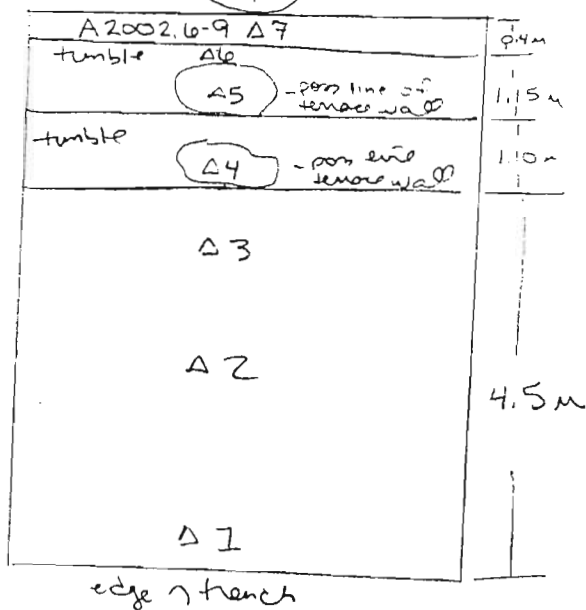 A2002.6-9 Δ7
0.4m
tumble Δ6
Δ5 - poss line of
terrace wall
1.15m
tumble
Δ4 - poss line
terrace wall
1.10m
Δ3
Δ2
4.5m
Δ1
edge of trench